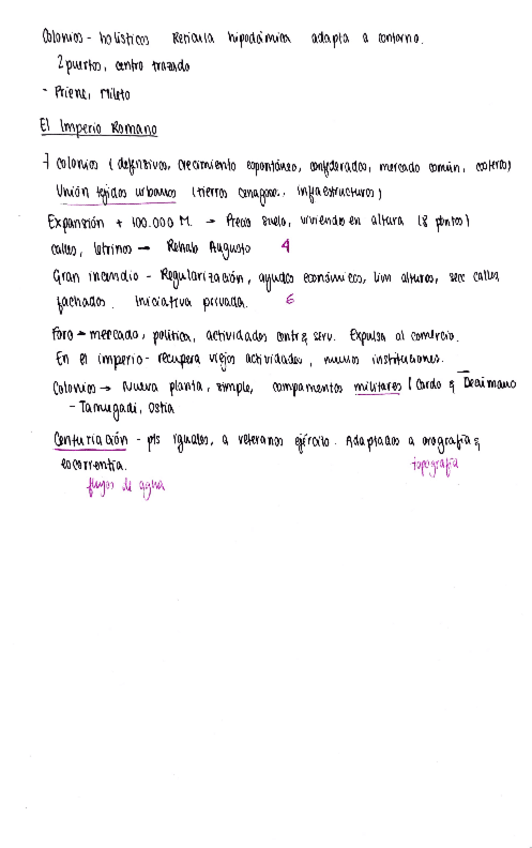 Colonias - holísticas Retícula hipodámica adapta a contorno.
2 puertos, centro trazado
- Priene, Mileto
El Imperio Romano
7 colonias (defensivas, crecimiento espontáneo, confederados, mercado común, costeros)
Unión tejidos urbanos (tierras cenagosa., infraestructuras)
Expansión + 100.000 M. → Precio suelo, viviendas en altura (8 plntas)
calles, letrinas → Rehab Augusto 4
Gran incendio - Regularización, ayudas económicas, lim alturas, secc calles,
fachadas. Iniciativa privada. 6
Foro → mercado, política, actividades contr y serv. Expulsa al comercio.
En el imperio - recupera viejas actividades, nuevas instituciones.
Colonias → Nueva planta, simple, campamentos militares (Cardo y Decumano
- Tamugadi, Ostia
Centuriación - pts iguales, a veteranos ejército. Adaptados a orografía y
escorrentía. topografía
flujos de agua